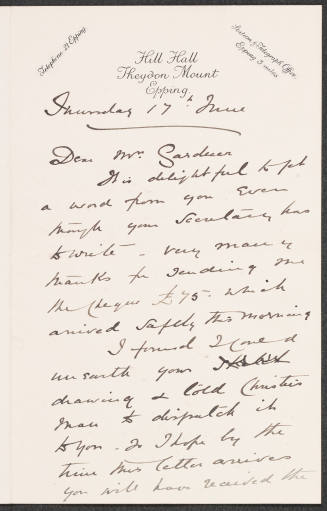 Telephone, 21 Epping.
Station & Telegraph Office,
Epping 3 miles
Hill Hall
Theydon Mount
Epping
Thursday 17th June
Dear Mrs Gardner
It is delightful to get
a word from you even
though your Secretary has
to write - very many
thanks for sending me
the cheque £75. which
arrived safely this morning
I found I could
unearth your
drawing & told Christies
man to dispatch it
to you. So I hope by the
time this letter arrives
you will have received the